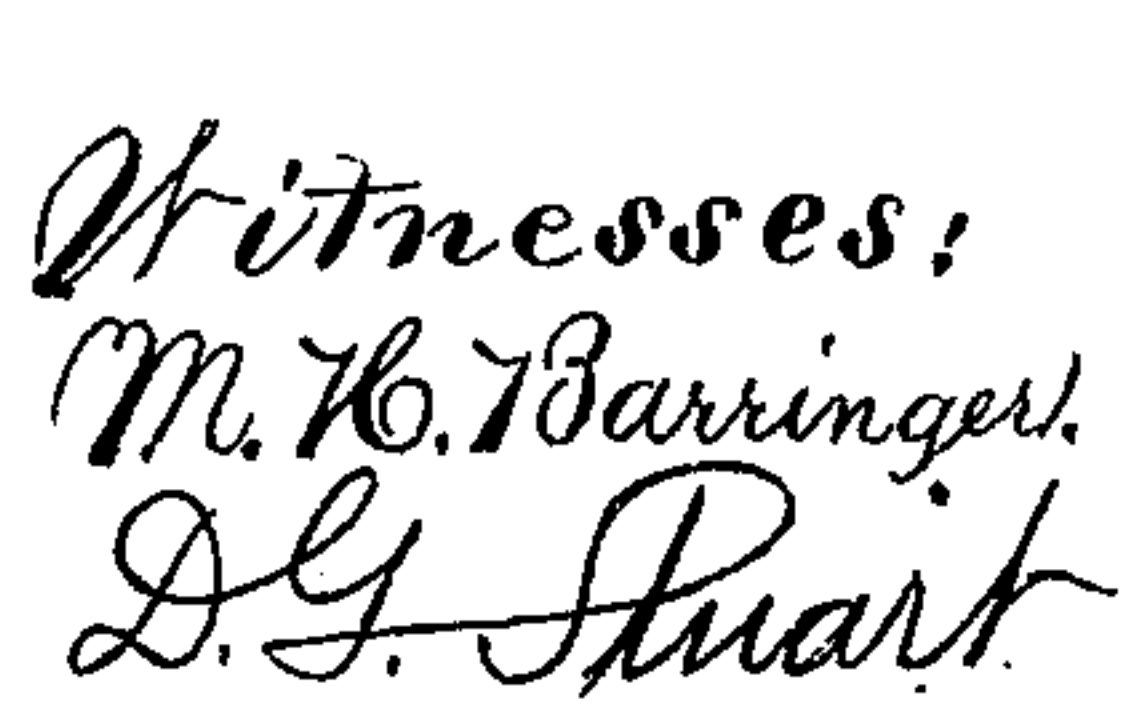 Witnesses:
M. H. Barringer.
D. G. Stuart